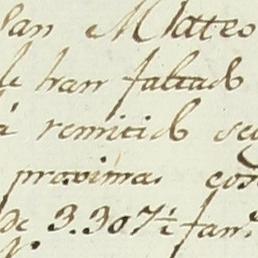 San Mateo
le han faltado
á remitido se
proxima cos
de 3.307½ fan.